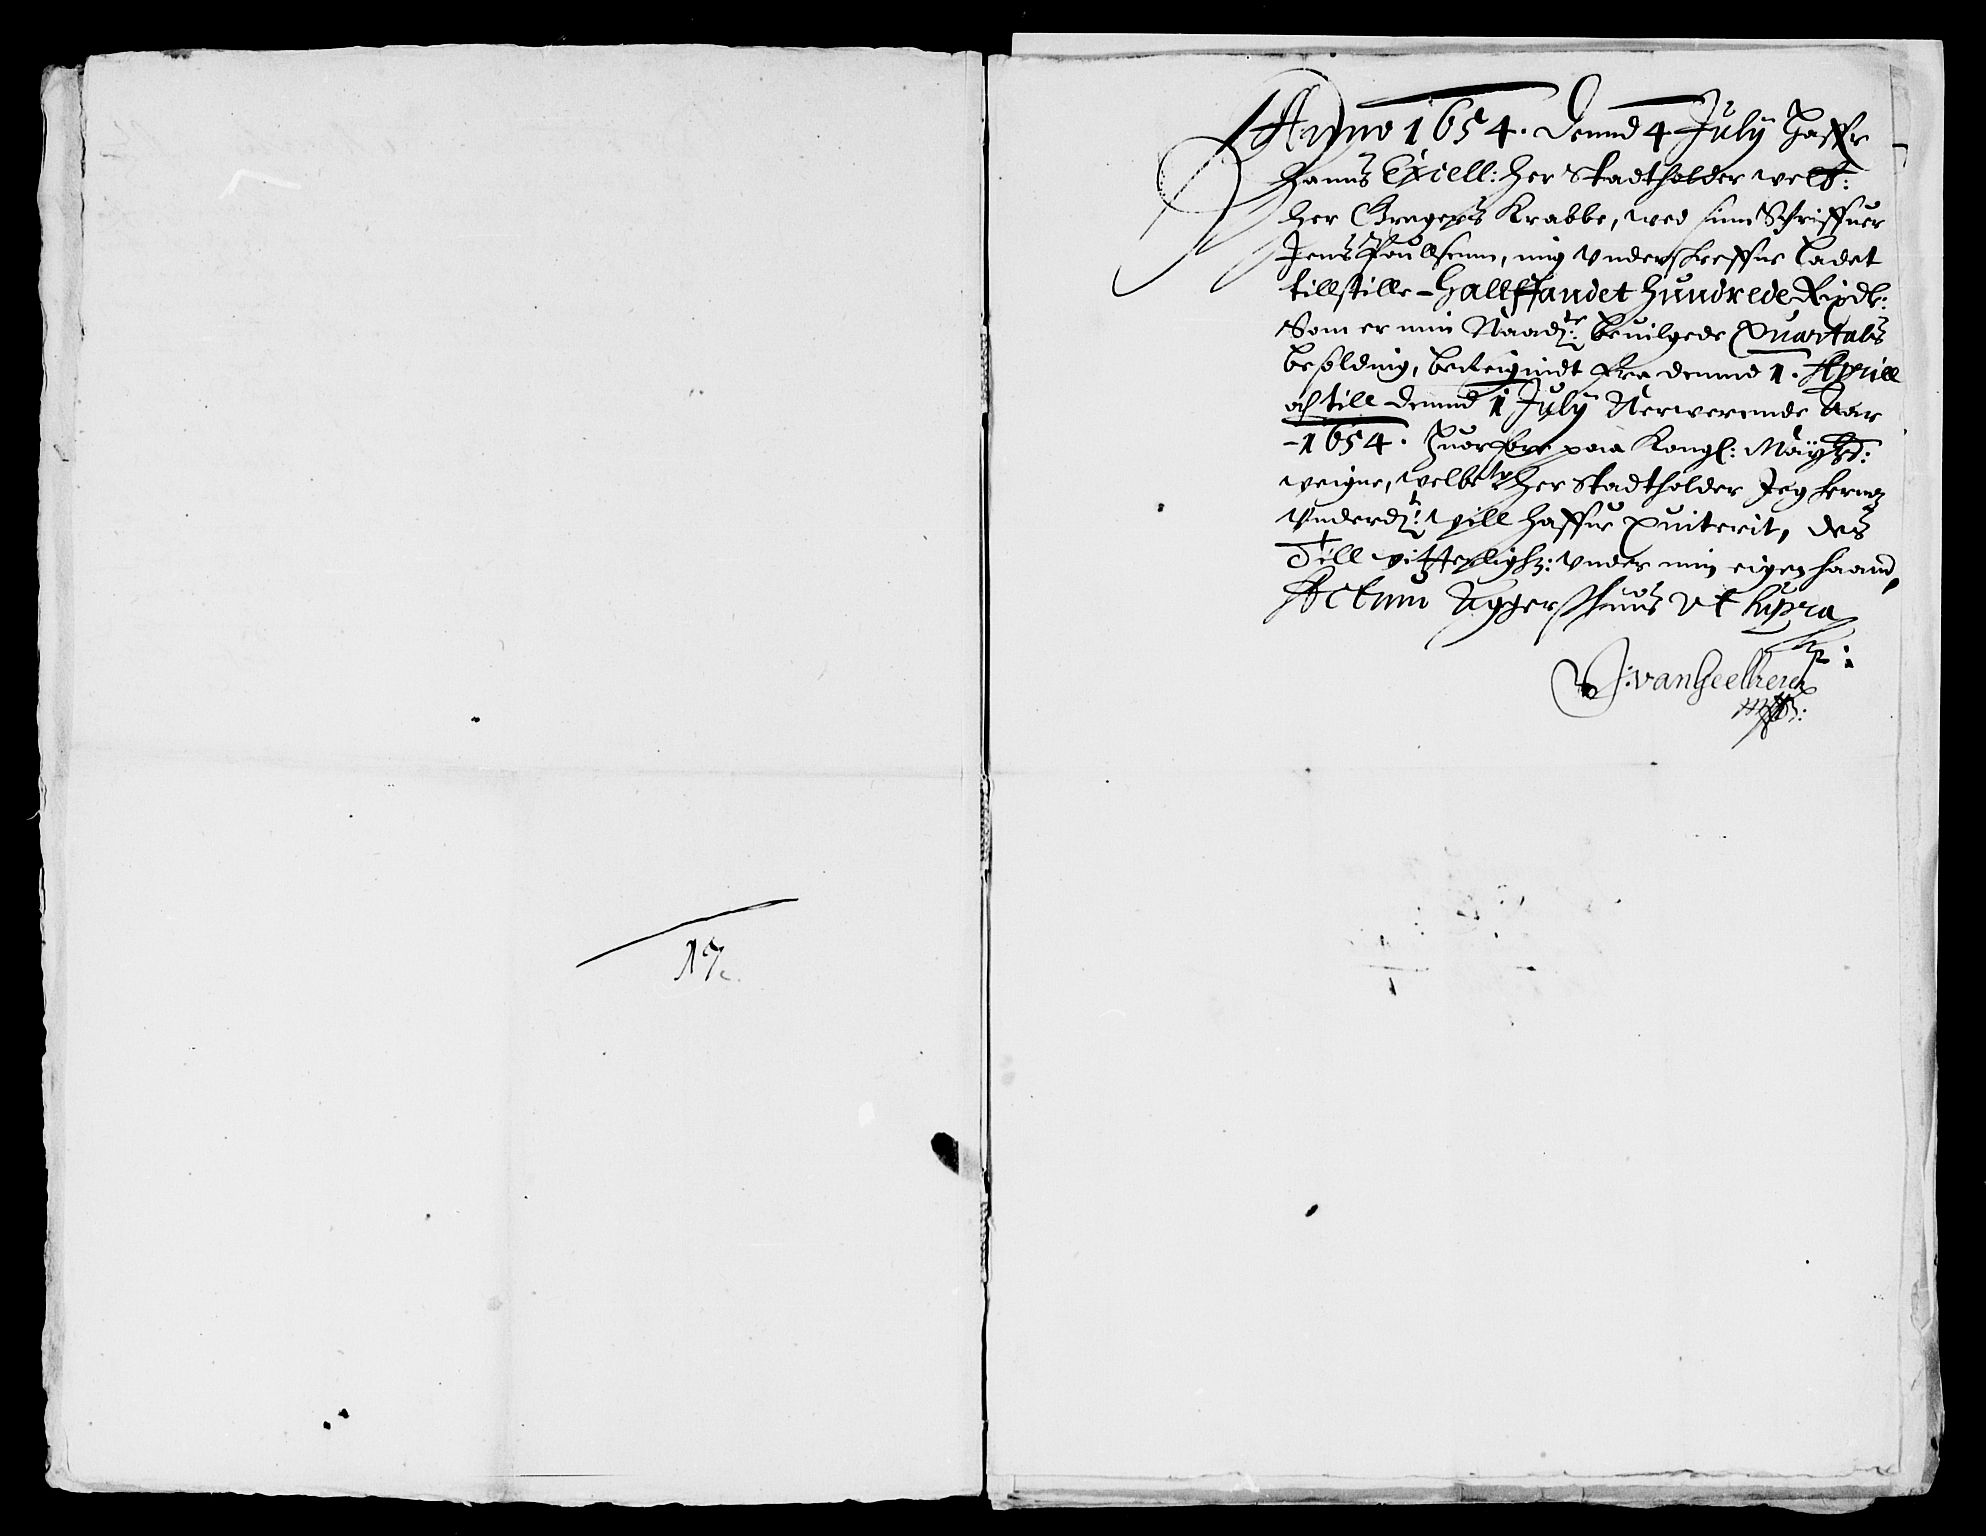 17.
Anno 1654. dennd 4 July haffr
hanns Exiell: her Stadtholder velb:
her Gregers Krabbe, ved sinn Schriffuer
Jens Poullsenn, mig vnderskreffne ladet
tillstille - Hallffandet hundrede Rixdr:
Som er min Naadste: beuilgede Quartals
besolding, bereignidt fra dennd 1. Aprill
och till dennd 1 July Nerverende Aar
- 1654. huorfore paa Kongl: Mayts:
veigne, velbte her Stadtholder Jeg hermz
vnderdt: vill haffue quiterit, des
Till vitterlighz: vnder min eigen haand,
Actum Aggershuus vt supra
J: van Geelkerck
mppa: